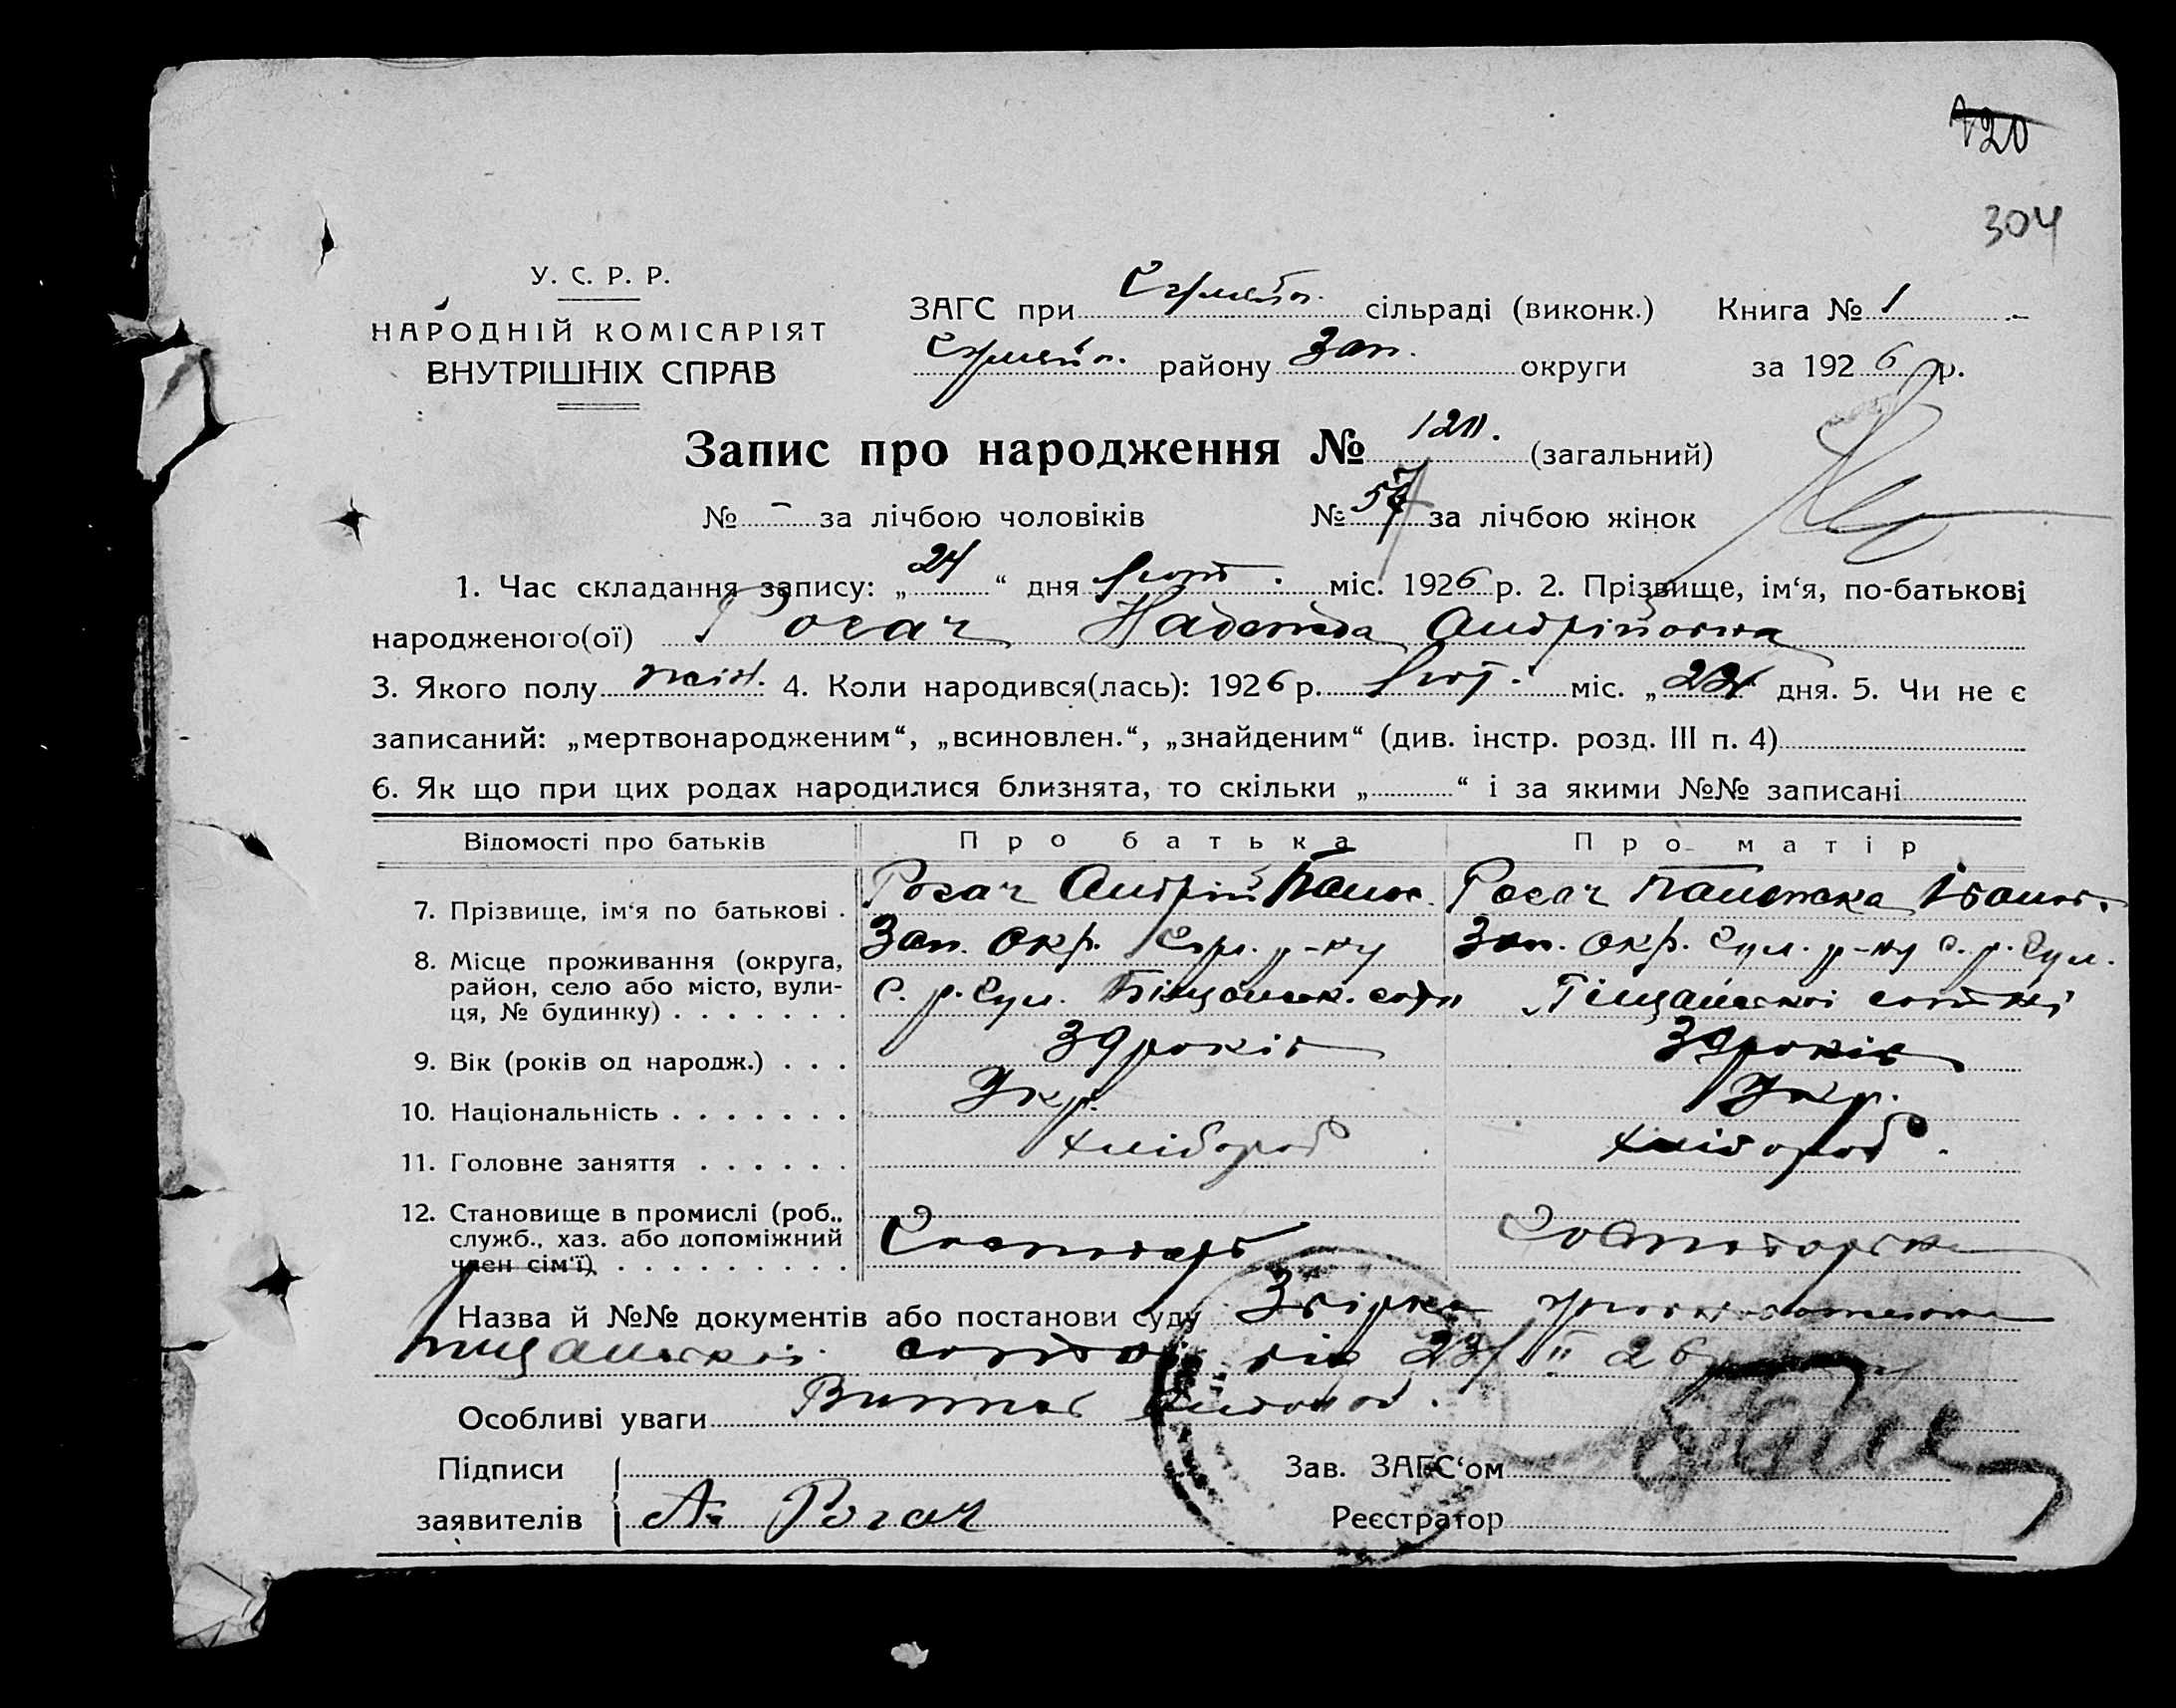 120
304
У. С. Р. Р.
НАРОДНІЙ КОМІСАРІЯТ
ВНУТРІШНІХ СПРАВ
ЗАГС при сільраді (виконк.) Книга № 1
району Зап. округи за 1926 р.
Запис про народження № 120. (загальний)
№ - за лічбою чоловіків № 57 за лічбою жінок
1. Час складання запису: „24“ дня Лют. міс. 1926 р. 2. Прізвище, ім‘я, по-батькові
народженого(ої) Рогач Надежда Андріївна
3. Якого полу жін. 4. Коли народився(лась): 1926 р. Лют. міс. „ “ дня. 5. Чи не є
записаний: „мертвонародженим“, „всиновлен.“, „знайденим“ (див. інстр. розд. III п. 4)
6. Як що при цих родах народилися близнята, то скільки „ “ і за якими №№ записані
Відомості про батьків Про батька Про матір
7. Прізвище, ім‘я по батькові . Рогач Андрій Рогач Іванов.
8. Місце проживання (округа, Зап. Окр. р-ну Зап. Окр. р-ну с. р.
район, село або місто, вули- с. р. сотні
ця, № будинку) . . . . . . .
9. Вік (років од народж.) . . . 39 років 39 років
10. Національність . . . . . . . Укр. Укр.
11. Головне заняття . . . . . . Хлібороб Хлібороб.
12. Становище в промислі (роб.,
служб., хаз. або допоміжний Господарь Господарька
член сім‘ї) . . . . . . . . .
Назва й №№ документів або постанови суду
сотні від 23/II 26
Особливі уваги Витяг
Підписи Зав. ЗАГС‘ом
заявителів А. Рогач Реєстратор